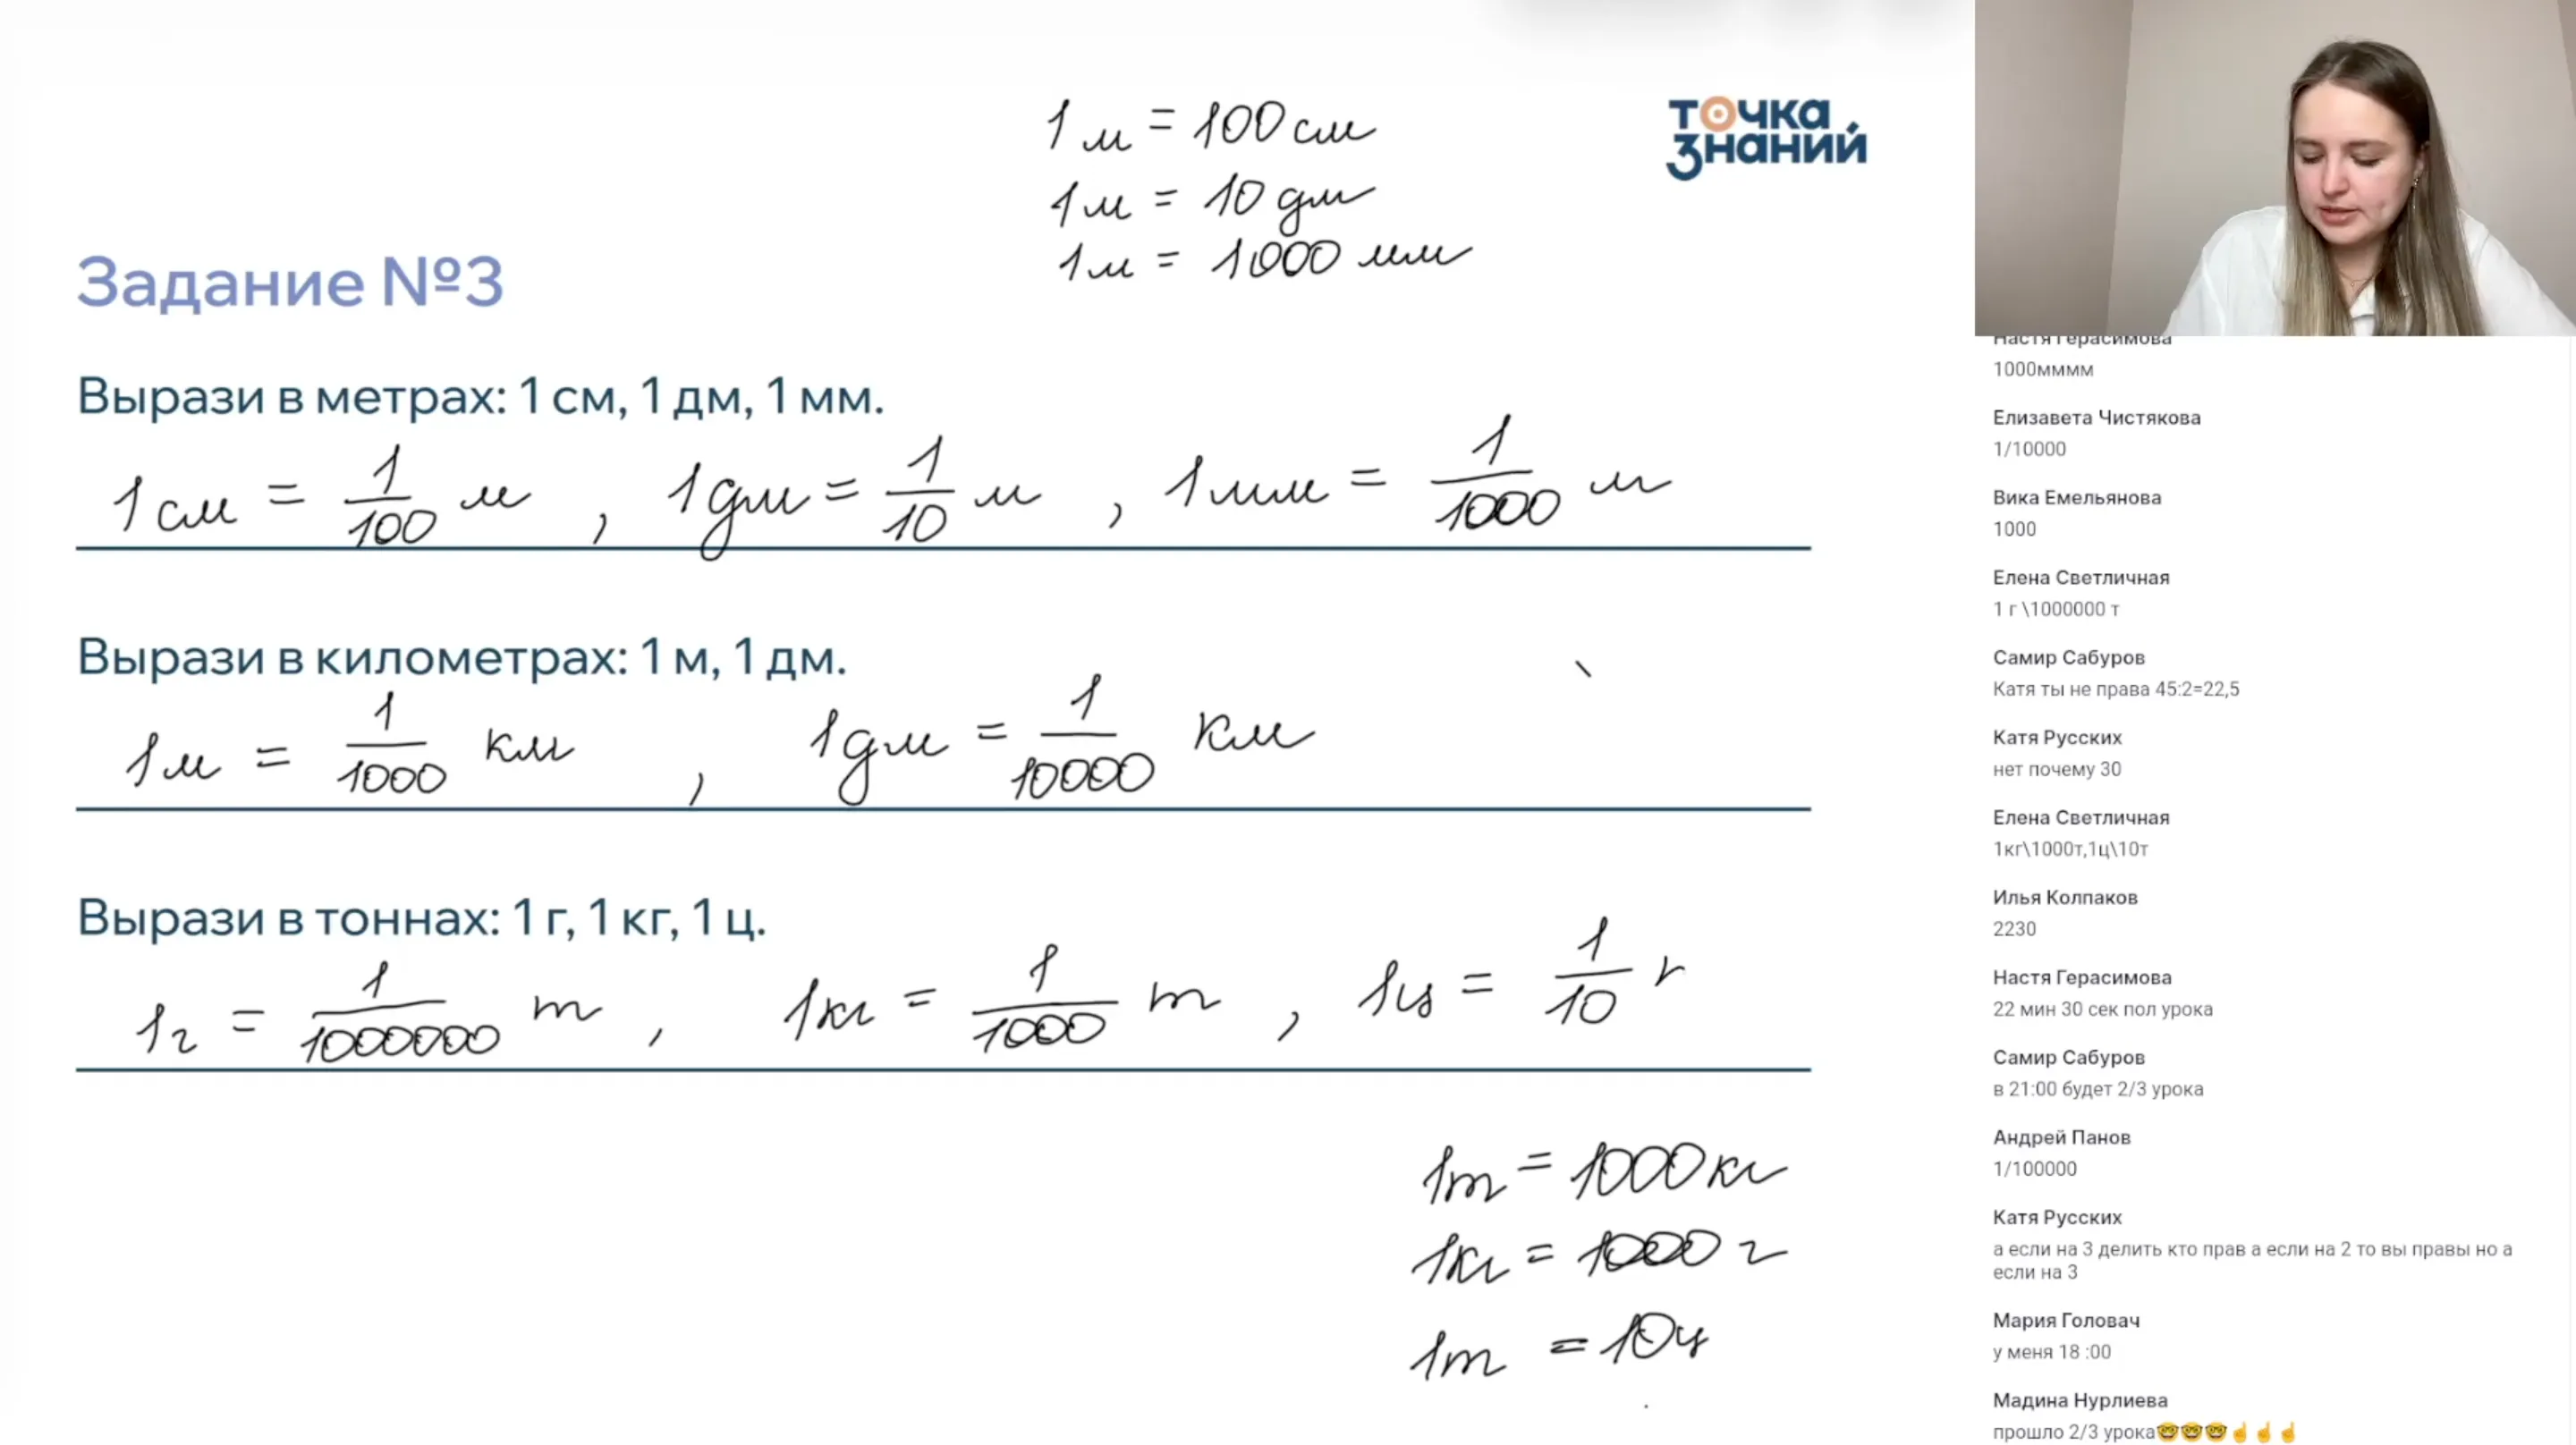 1 м = 100 см
1 м = 10 дм
1 м = 1000 мм
точка
знаний
Задание №3
Вырази в метрах: 1 см, 1 дм, 1 мм.
1 см = 1/100 м , 1 дм = 1/10 м , 1 мм = 1/1000 м
Вырази в километрах: 1 м, 1 дм.
1 м = 1/1000 км , 1 дм = 1/10000 км
Вырази в тоннах: 1 г, 1 кг, 1 ц.
1 г = 1/1000000 т , 1 кг = 1/1000 т , 1 ц = 1/10
1 т = 1000 кг
1 кг = 1000 г
1 т = 10 ц
Настя Герасимова
1000мммм
Елизавета Чистякова
1/10000
Вика Емельянова
1000
Елена Светличная
1 г \1000000 т
Самир Сабуров
Катя ты не права 45:2=22,5
Катя Русских
нет почему 30
Елена Светличная
1кг\1000т,1ц\10т
Илья Колпаков
2230
Настя Герасимова
22 мин 30 сек пол урока
Самир Сабуров
в 21:00 будет 2/3 урока
Андрей Панов
1/100000
Катя Русских
а если на 3 делить кто прав а если на 2 то вы правы но а
если на 3
Мария Головач
у меня 18 :00
Мадина Нурлиева
прошло 2/3 урока🤓🤓🤓☝️☝️☝️